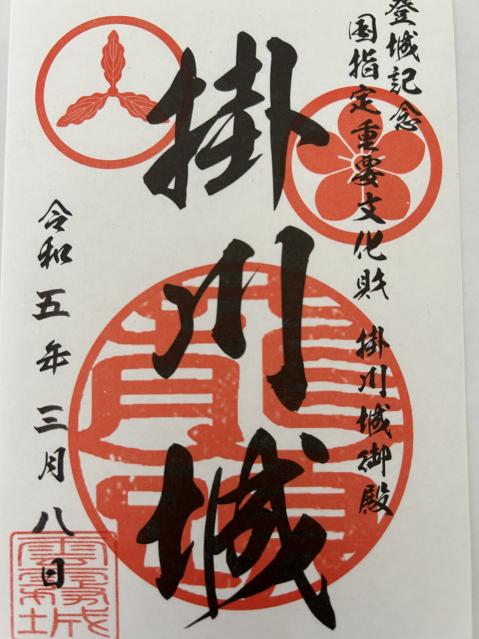 登城記念
国指定重要文化財 掛川城御殿
掛川城
令和五年三月八日
雲霧城